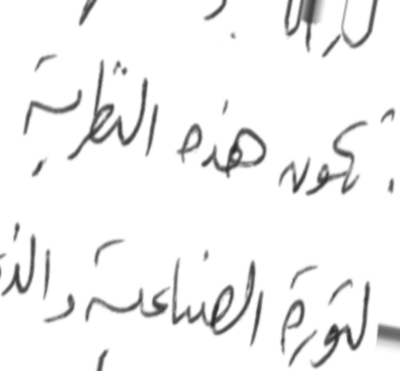 تكون هذه النظرية
لثورة الصناعية و